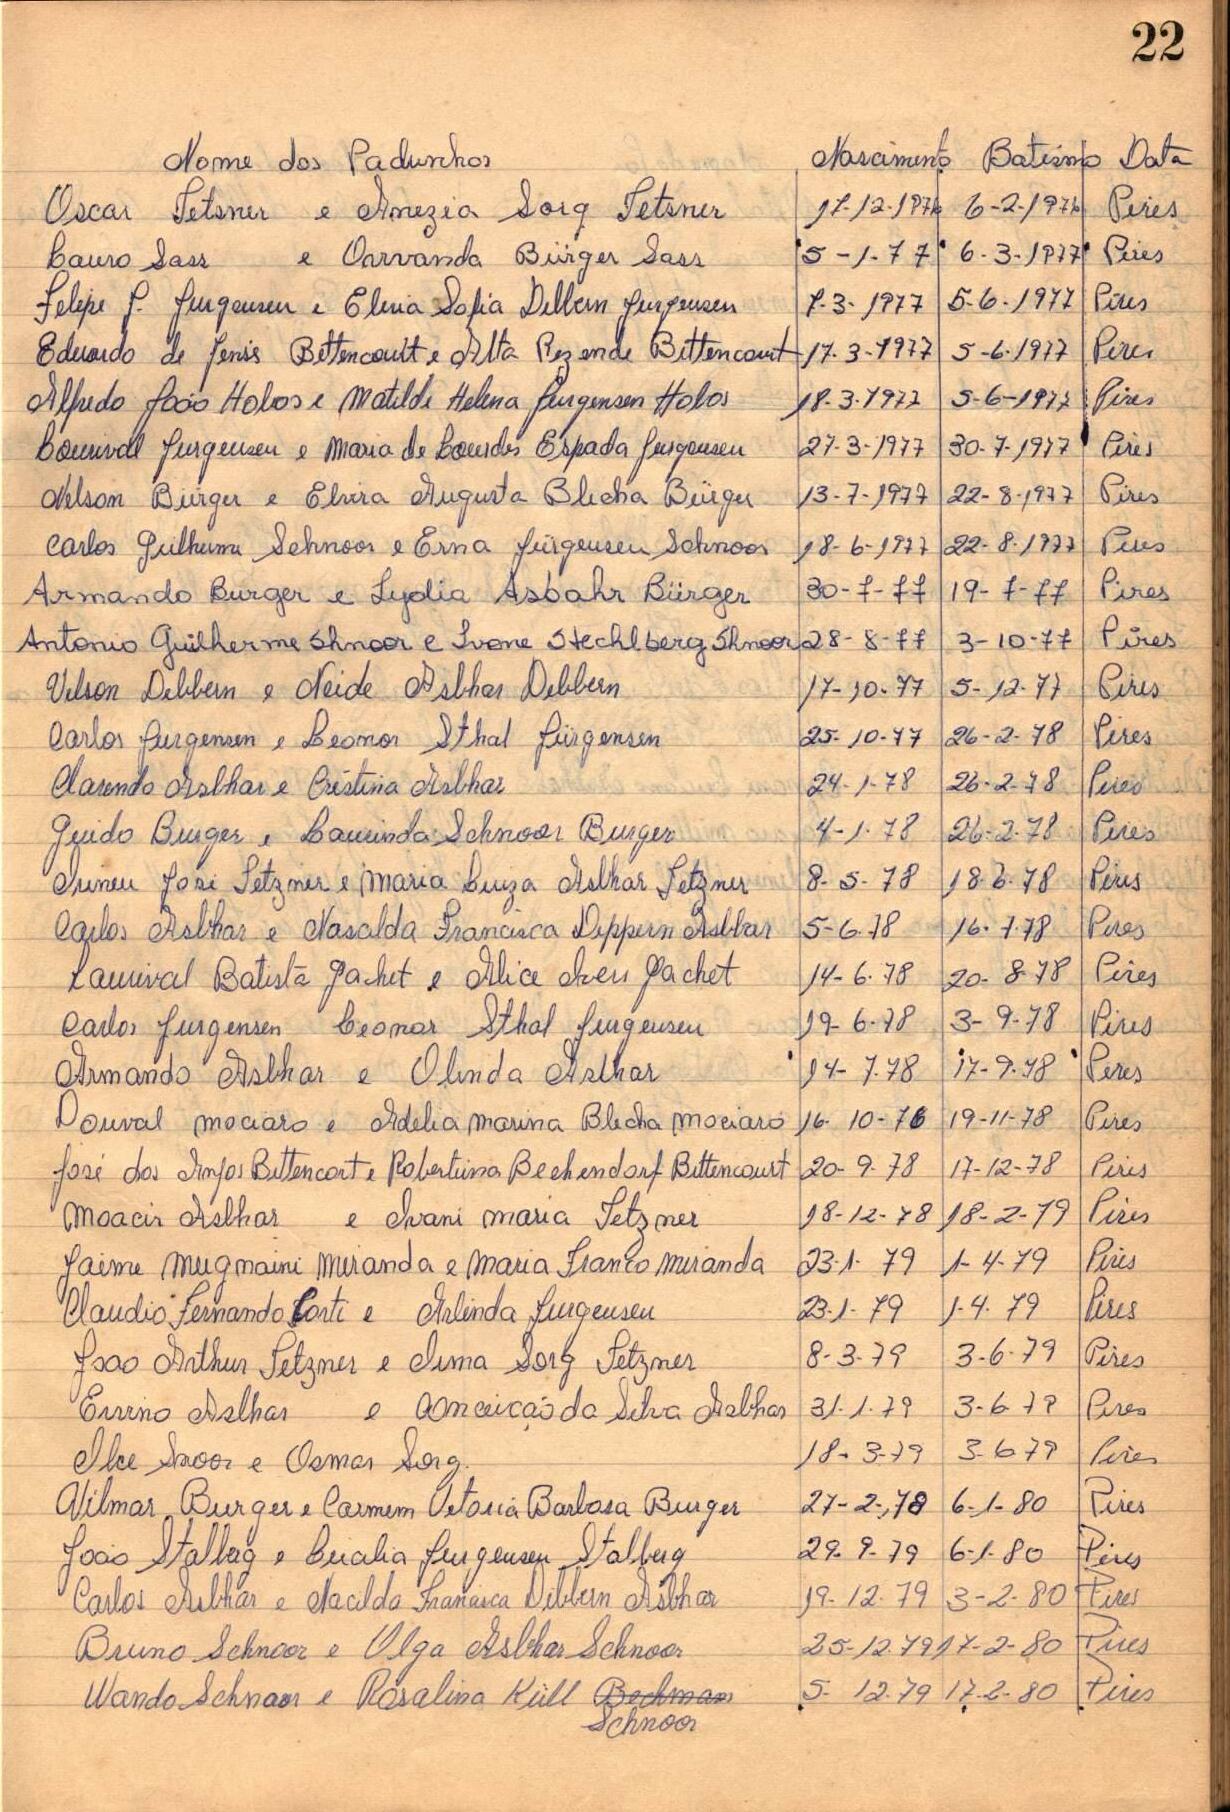 22
Nome dos Padrinhos Nascimento Batismo Data
Oscar Tetsner e Amezia Sorg Tetsner 17-12-1976 6-2-1976 Pires
Lauro Sass e Orvanda Bürger Sass 5-1-77 6-3-1977 Pires
Felipe J. Jurgensen e Elena Sofia Dibbern Jurgensen 7-3-1977 5-6-1977 Pires
Eduardo de Jenis Bettencourt e Alta Rezende Bittencourt 17-3-1977 5-6-1977 Pires
Alfredo João Holos e Matilde Helena Jurgensen Holos 18-3-1977 5-6-1977 Pires
Lourival Jurgensen e Maria de Lourdes Espada Jurgensen 27-3-1977 30-7-1977 Pires
Nelson Bürger e Elvira Augusta Blecha Bürger 13-7-1977 22-8-1977 Pires
Carlos Guilherme Schnoor e Erna Jürgensen Schnoor 18-6-1977 22-8-1977 Pires
Armando Burger e Lydia Asbahr Bürger 30-7-77 19-7-77 Pires
Antonio Guilherme Shnoor e Ivone Stechlberg Shnoor 28-8-77 3-10-77 Pires
Vilson Dibbern e Neide Asbhar Dibbern 17-10-77 5-12-77 Pires
Carlos Jurgensen e Leonor Sthal Jürgensen 25-10-77 26-2-78 Pires
Clarendo Asbhar e Cristina Asbhar 24-1-78 26-2-78 Pires
Guido Burger e Laurinda Schnoor Burger 4-1-78 26-2-78 Pires
Irineu José Setzner e Maria Luiza Asbhar Setzner 8-5-78 18-6-78 Pires
Carlos Asbhar e Nasalda Francisca Deppern Asbhar 5-6-78 16-7-78 Pires
Laurival Batista Gachet e Alice Ivers Gachet 14-6-78 20-8-78 Pires
Carlos Jurgensen Leonor Sthal Jurgensen 19-6-78 3-9-78 Pires
Armando Asbhar e Olinda Asbhar 14-7-78 17-9-78 Pires
Dourval Mociaro e Adelia Marina Blecha Mociaro 16-10-76 19-11-78 Pires
José dos Anjos Bittencort e Robertina Bechendorf Bittencourt 20-9-78 17-12-78 Pires
Moacir Asbhar e Ivani Maria Setzner 18-12-78 18-2-79 Pires
Jaime Mugnaini Miranda e Maria Franco Miranda 23-1-79 1-4-79 Pires
Claudio Fernando Corte e Arlinda Jurgensen 23-1-79 1-4-79 Pires
Joao Arthur Setzner e Irma Sorg Setzner 8-3-79 3-6-79 Pires
Eurino Asbhar e Conceição da Silva Asbhar 31-1-79 3-6-79 Pires
Ilce Snoor e Osmar Sorg. 18-3-79 3-6-79 Pires
Vilmar Burger e Carmem Vitoria Barbosa Burger 27-2-78 6-1-80 Pires
João Stalberg e Cecilia Jurgensen Stalberg 29-9-79 6-1-80 Pires
Carlos Asbhar e Nacilda Francisca Dibbern Asbhar 19-12-79 3-2-80 Pires
Bruno Schnoor e Olga Asbhar Schnoor 25-12-79 17-2-80 Pires
Wando Schnoor e Rosalina Küll Bechman 5-12-79 17-2-80 Pires
Schnoor